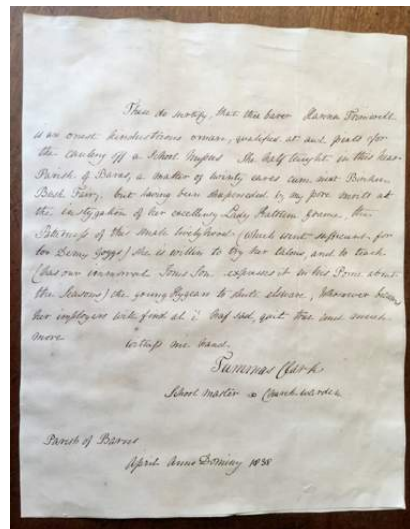 These do sartify, that this barer Hanna Thinwell
is an onest hindustrous oman, qualified at and pents for
the calling off a School Mistress She half taught in this hear
Parish of Barns, a maker of twinty eares cum next
Bush Fair, but having been superceded by my pore merits at
the instygation of her excellency Lady Hattien Greame, the
Patterness of this smale livelyhood (which went sufficient for
for Demy Goggs) she is willen to try her talons, and to teach
(has our immoral Toms Son expresses it in his Poime about
the Seasons) the young Hygears to shute elsware, Wherever
her imployers will find at I haf sed, quit true and much
more
witness me hand.
Tummas Clark
School Master & Church Warden
Parish of Barns
April Anno Dominy 1838